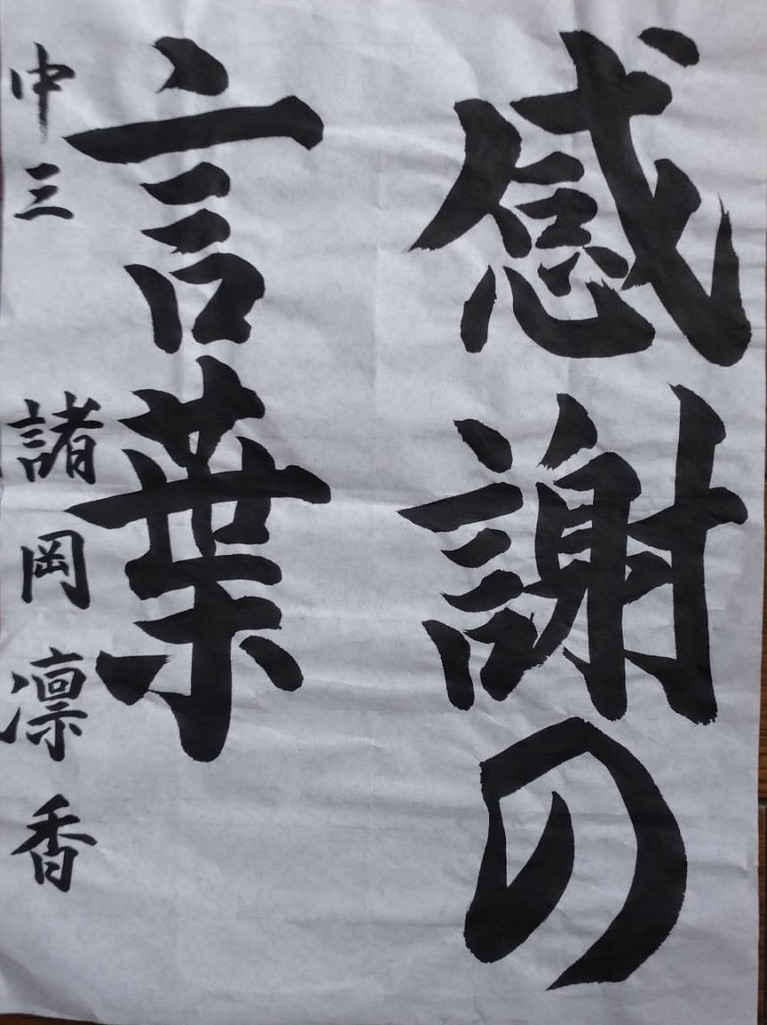 感謝の
言葉
中三 諸岡凛香